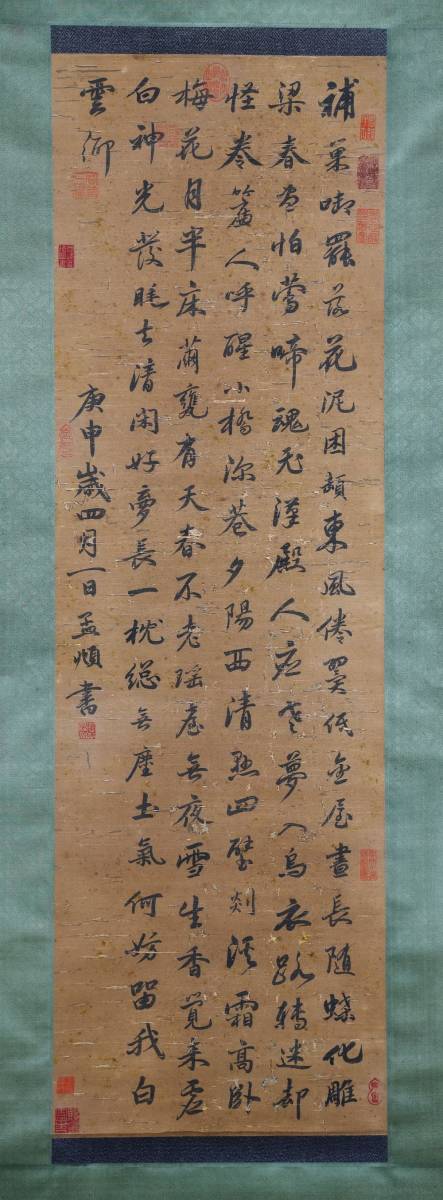 補巢啣罷落花泥困頓東風倦翼低金屋晝長隨蝶化雕
梁春盡怕鶯啼魂飛漢殿人應老夢入烏衣路轉迷却
怪卷簾人呼醒小橋深巷夕陽西清懸四壁剡溪霜高臥
梅花月半床繭甕有天春不老瑶臺無夜雪生香覺来虛
白神光發睡去清閑好夢長一枕總無塵土氣何妨留我白
雲鄉
庚申歲四月一日孟頫書